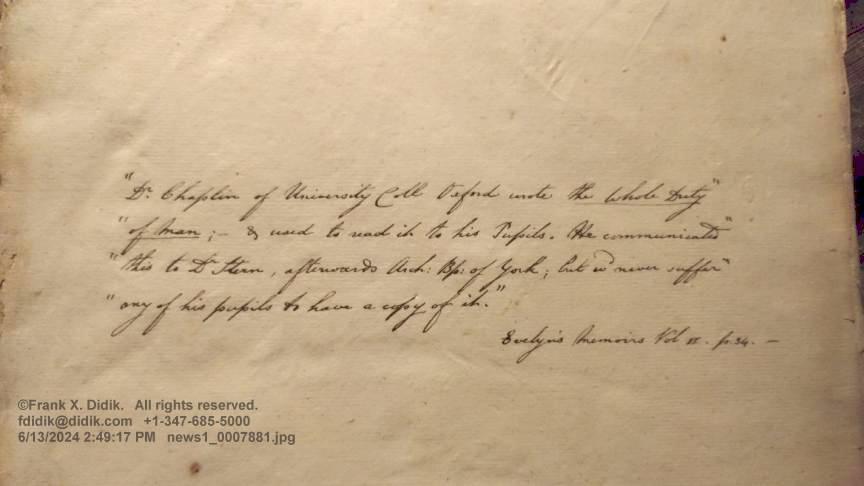 "Dr Chaplin of University Coll Oxford wrote the Whole Duty"
"of Man; – & used to read it to his Pupils. He communicated"
"this to Dr Stern, afterwards Arch: Bp: of York; but wd never suffer"
"any of his pupils to have a copy of it."
Evelyn's Memoirs Vol II. p. 34. –
©Frank X. Didik. All rights reserved.
fdidik@didik.com +1-347-685-5000
6/13/2024 2:49:17 PM news1_0007881.jpg